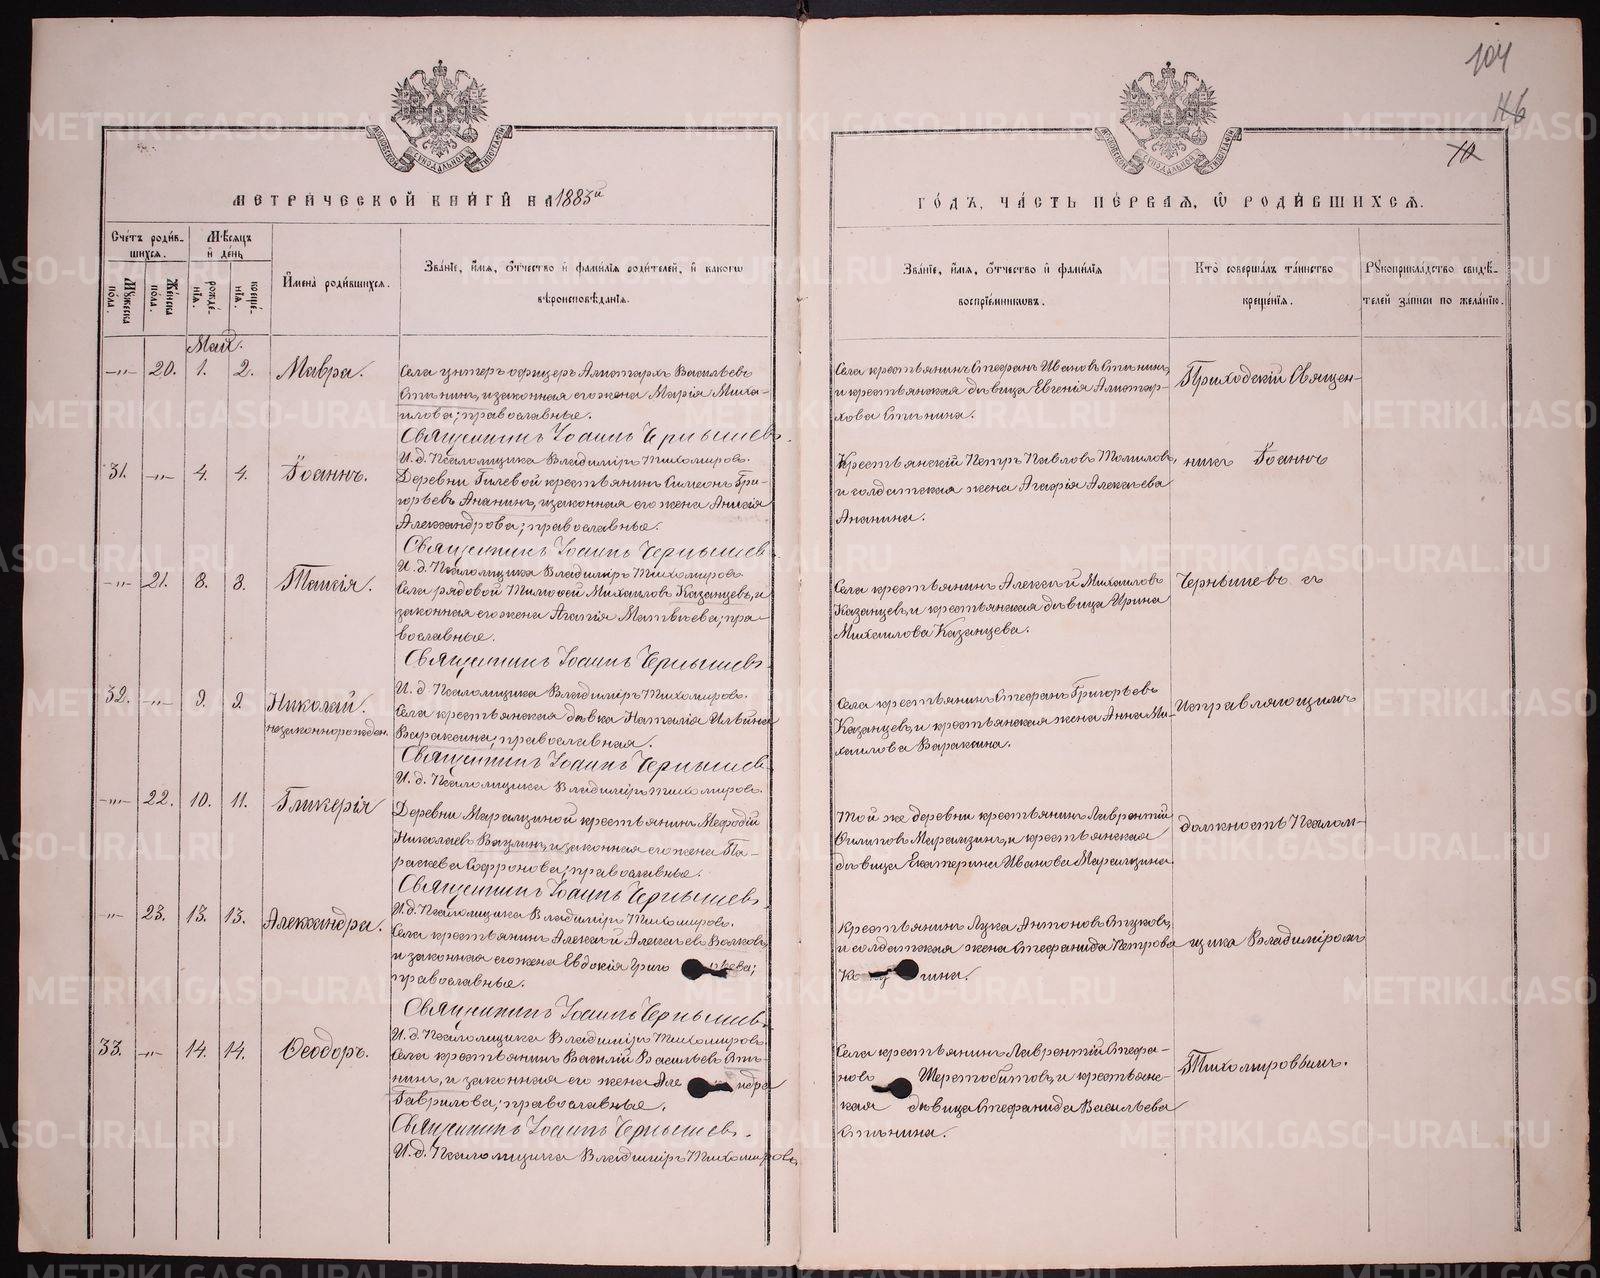 104
46
70
МОСКОВСКОЙ СѴНОДАЛЬНОЙ ТИПОГРАФІИ
МОСКОВСКОЙ СѴНОДАЛЬНОЙ ТИПОГРАФІИ
МЕТРИ́ЧЕСКОЙ КНИ́ГИ НА 1883й
ГО́ДЪ, ЧА́СТЬ ПЕ́РВАЯ, Ѡ РОДИ́ВШИХСЯ.
Сче́тъ роди́в-
шихся.
Мѣ́сяцъ
и де́нь
Му́жеска по́ла.
Же́нска по́ла.
рожде́-нїя.
креще́-нїя.
И҆мена̀ роди́вшихся.
Зва́нїе, и҆́мя, ѻ҆́тчество и҆ фами́лїя роди́телей, и҆ како́гѡ
вѣроисповѣ́данїя.
Зва́нїе, и҆́мя, ѻ҆́тчество и҆ фами́лїя
воспрїе́мникѡвъ.
Кто̀ соверша́лъ та́инство
креще́нїя.
Рꙋкоприкла́дство свидѣ́-
телей за́писи по жела́нїю.
Май.
-"- 20. 1. 2. Мавра.
Села унтеръ офицеръ Алистархъ Васильевъ
Стѣнинъ, и законная его жена Марія Миха-
илова; православные.
Священникъ Іоаннъ Чернышевъ.
И. д. Псаломщика Владиміръ Тихомировъ.
Села крестьянинъ Стефанъ Ивановъ Стѣнинъ,
и крестьянская дѣвица Евгенія Алистар-
хова Стѣнина.
Приходскій Священ-
31. -"- 4. 4. Іоаннъ.
Деревни Гилевой крестьянинъ Симеонъ Гри-
горьевъ Ананинъ, и законная его жена Анисія
Александрова; православные.
Священникъ Іоаннъ Чернышевъ.
И. д. Псаломщика Владиміръ Тихомировъ.
Крестьянскій Петръ Павловъ Томиловъ,
и солдатская жена Агафія Алексѣева
Ананина.
никъ Іоаннъ
-"- 21. 8. 8. Таисія.
Села рядовой Тимофей Михаиловъ Казанцевъ, и
законная его жена Агапія Матвѣева; пра-
вославные.
Священникъ Іоаннъ Чернышевъ.
И. д. Псаломщика Владиміръ Тихомировъ.
Села крестьянинъ Алексѣй Михаиловъ
Казанцевъ, и крестьянская дѣвица Ирина
Михаилова Казанцева.
Чернышевъ съ
32. -"- 9. 9. Николай.
незаконнорожден.
Села крестьянская дѣвка Наталія Ильина
Вараксина; православная.
Священникъ Іоаннъ Чернышевъ.
И. д. Псаломщика Владиміръ Тихомировъ.
Села крестьянинъ Стефанъ Григорьевъ
Казанцевъ, и крестьянская жена Анна Ми-
хаилова Вараксина.
Исправляющимъ
-"- 22. 10. 11. Гликерія
Деревни Марамзиной крестьянинъ Мефодій
Николаевъ Ваулинъ, и законная его жена Па-
раскева Софронова; православные.
Священникъ Іоаннъ Чернышевъ.
И. д. Псаломщика Владиміръ Тихомировъ.
Той же деревни крестьянинъ Лаврентій
Филиповъ Марамзинъ, и крестьянская
дѣвица Екатерина Иванова Марамзина.
должность Псалом-
-"- 23. 13. 13. Александра.
Села крестьянинъ Алексѣй Алексѣевъ Волковъ,
и законная его жена Евдокія Григо рьева;
православные.
Священникъ Іоаннъ Чернышевъ.
И. д. Псаломщика Владиміръ Тихомировъ.
Крестьянинъ Лука Антоновъ Стуковъ,
и солдатская жена Стефанида Петрова
щика Владиміромъ
33. -"- 14. 14. Ѳеодоръ.
Села крестьянинъ Василій Васильевъ Стѣ-
нинъ, и законная его жена Але ндра
Гаврилова; православные.
Священникъ Іоаннъ Чернышевъ.
И. д. Псаломщика Владиміръ Тихомировъ.
Села крестьянинъ Лаврентій Стефа-
новъ Шерстобитовъ, и крестьян-
ская дѣвица Стефанида Васильева
Стѣнина.
Тихомировымъ.